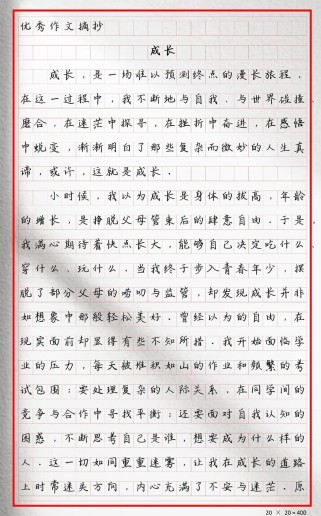 优秀作文摘抄
成长
成长，是一场难以预测终点的漫长旅程，
在这一过程中，我不断地与自我、与世界碰撞、
磨合，在迷茫中探寻，在挫折中奋进，在感悟
中蜕变，渐渐明白了那些复杂而微妙的人生真
谛，或许，这就是成长。
小时候，我以为成长是身体的拔高，年龄
的增长，是挣脱父母管束后的肆意自由。于是，
我满心期待着快点长大，能够自己决定吃什么、
穿什么、玩什么，当我终于步入青春年少，摆
脱了部分父母的唠叨与监管，却发现成长并非
如想象中那般轻松美好，曾经以为的自由，在
现实面前却显得有些不知所措。我开始面临学
业的压力，每天被堆积如山的作业和频繁的考
试包围；要处理复杂的人际关系，在同学间的
竞争与合作中寻找平衡；还要面对自我认知的
困惑，不断思考自己是谁，想要成为什么样的
人。这一切如同重重迷雾，让我在成长的道路
上时常迷失方向，内心充满了不安与迷茫。原
20 × 20 = 400